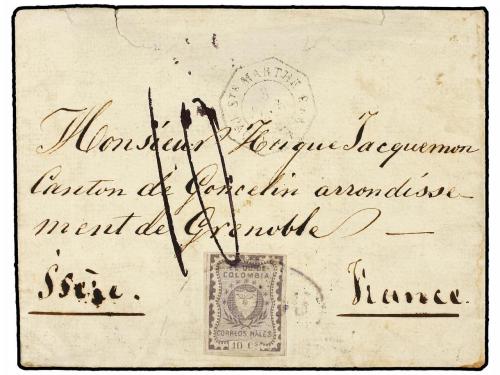 STE MARTHE
10
Monsieur Hugue Jacquemon
Canton de Goncelin arrondisse-
ment de Grenoble —
Isère. France.
E.E. U.U. DE
COLOMBIA
CORREOS NALES
10 Cs